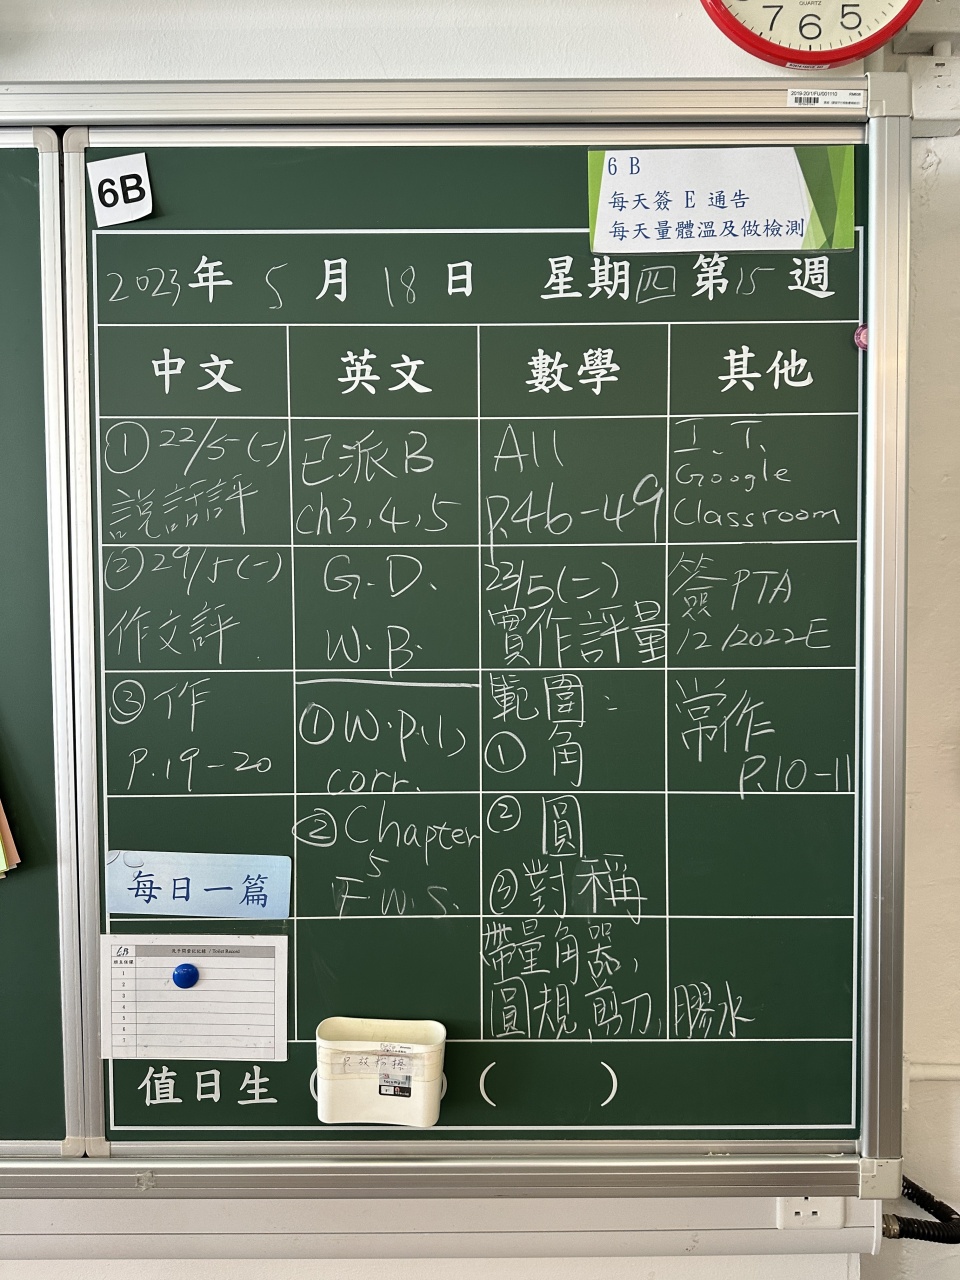 QUARTZ
7 6 5
2019-20/1/FU/001110
6B
6 B
每天簽 E 通告
每天量體溫及做檢測
2023年 5月 18日 星期四 第15週
中文 英文 數學 其他
① 22/5 (一)
說話評
② 29/5 (一)
作文評
③ 作
P.19-20
每日一篇
已派B
ch3,4,5
G.D.
W.B.
① W.P.(1)
corr.
② Chapter
5
F.W.S.
All
P.46-49
23/5 (二)
實作評量
範圍:
① 角
② 圓
③ 對稱
帶量角器,
圓規,剪刀,膠水
I.T.
Google
Classroom
簽 PTA
12/2022E
常作
P.10-11
6B
洗手間登記紀錄 / Toilet Record
1
2
3
4
5
6
7
值日生 ( ) ( )